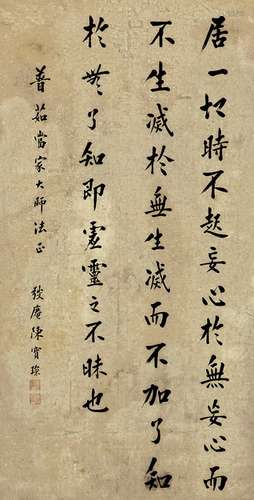 居一切時不起妄心於無妄心而
不生滅於無生滅而不加了知
於無了知即虛靈之不昧也
普茹當家大師法正
弢庵陳寶琛